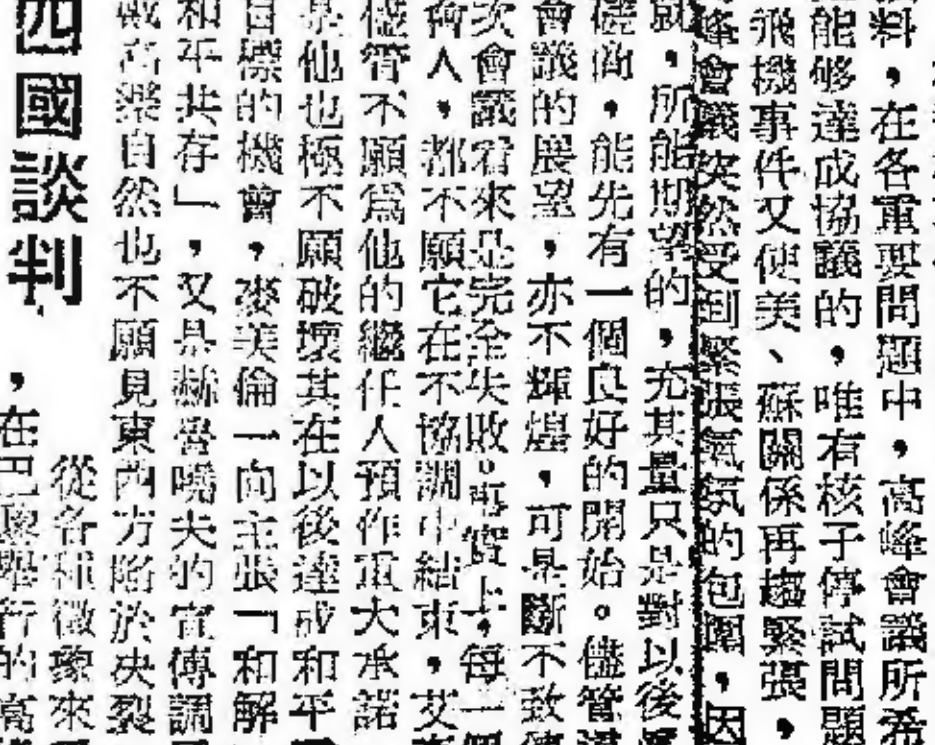 料，在各重要問題中，高峰會議所希
能够達成協議的，唯有核子停試問題
飛機事件又使美、蘇關係再趨緊張，
峰會議突然受到緊張氣氛的包圍，因
就，所能期望的，充其量只是對以後
儘尚，能先有一個良好的開始。儘管
會議的展望，亦不輝煌，可是斷不致
次會議看來是完全失敗。事實上，每一個
會人，都不願它在不協調中結束，艾
儘管不願為他的繼任人預作重大承諾
是他也極不願破壞其在以後達成和平
目標的機會，麥美倫一向主張「和解
和平共存」，又是赫魯曉夫的宣傳調
戴高樂自然也不願見東西方陷於决裂
從各種徵象來
，在巴黎舉行的高
四國談判